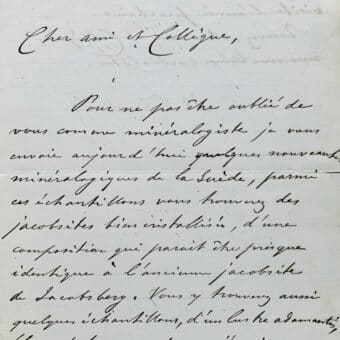 Cher ami et Collègue,
Pour ne pas être oublié de
vous comme minéralogiste je vous
envoie aujourd'hui quelques nouveautés
minéralogiques de la Suède, parmi
ces échantillons vous trouvez des
jacobsites bien cristallisés, d'une
composition qui parait être presque
identique à l'ancienne jacobsite
de Jacobsberg. Vous y trouvez aussi
quelques échantillons, d'un lustre adamantin,